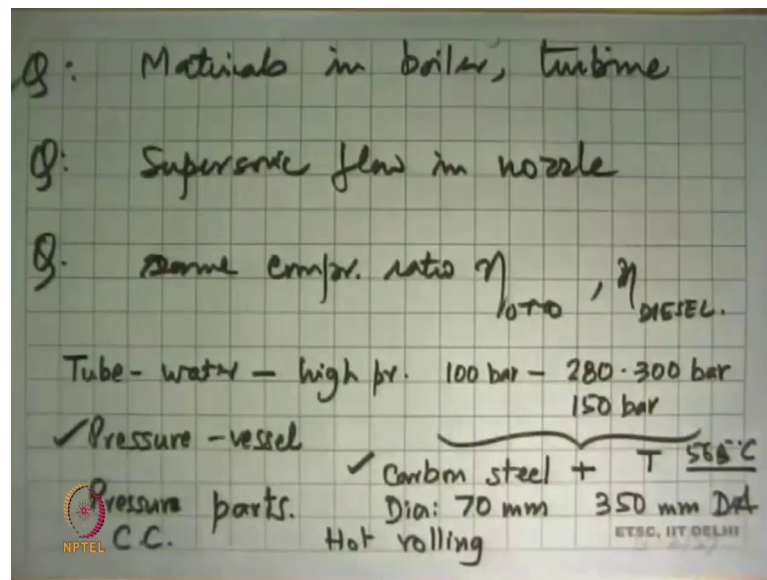 Q: Materials in boiler, turbine
Q: Supersonic flow in nozzle
Q. same compr. ratio η OTTO , η DIESEL.
Tube - water - high pr. 100 bar - 280 - 300 bar
150 bar
✓Pressure - vessel
✓ Carbon steel + T 565°C
Pressure parts. Dia: 70 mm 350 mm DIA
C.C. Hot rolling
NPTEL
ETSC, IIT DELHI